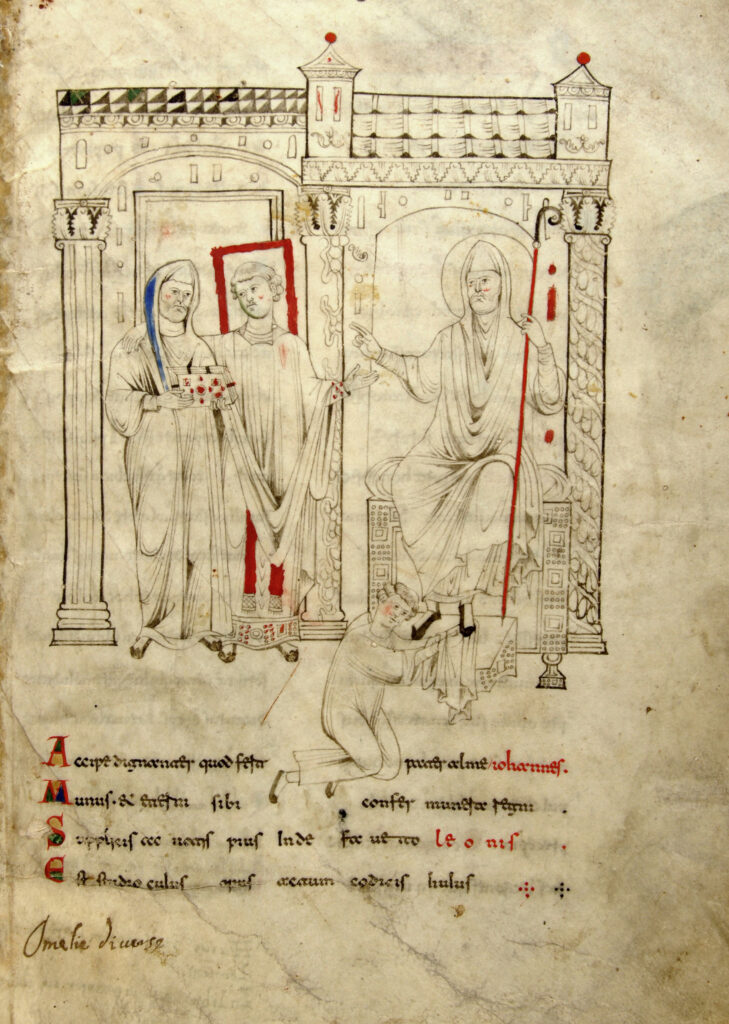 Accipe dignanter quod fert pater alme iohannes.
Munus. & eterni sibi confer munera regni .
Supplicis ac uotis pius inde faueto leonis .
Est studio cuius opus actum codicis huius
Omelie diuerse